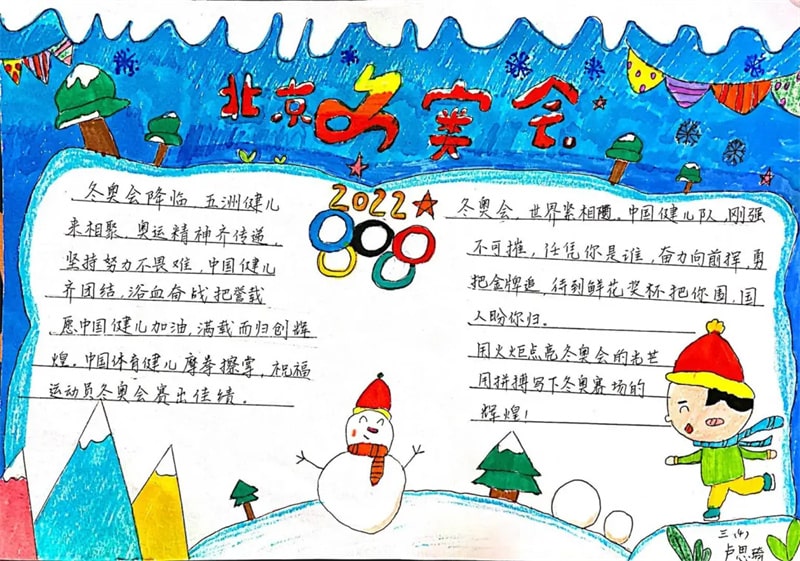 北京冬奥会
2022
冬奥会降临 五洲健儿
来相聚,奥运精神齐传递,
坚持努力不畏难,中国健儿
齐团结,浴血奋战把誉载
愿中国健儿加油,满载而归创辉
煌。中国体育健儿摩拳擦掌,祝福
运动员冬奥会赛出佳绩。
冬奥会,世界紧相圈。中国健儿队,刚强
不可摧,任凭你是谁,奋力向前挥,勇
把金牌追,得到鲜花奖杯把你围,国
人盼你归。
用火炬点亮冬奥会的光芒
用拼搏写下冬奥赛场的
辉煌!
三(4)
卢思琦